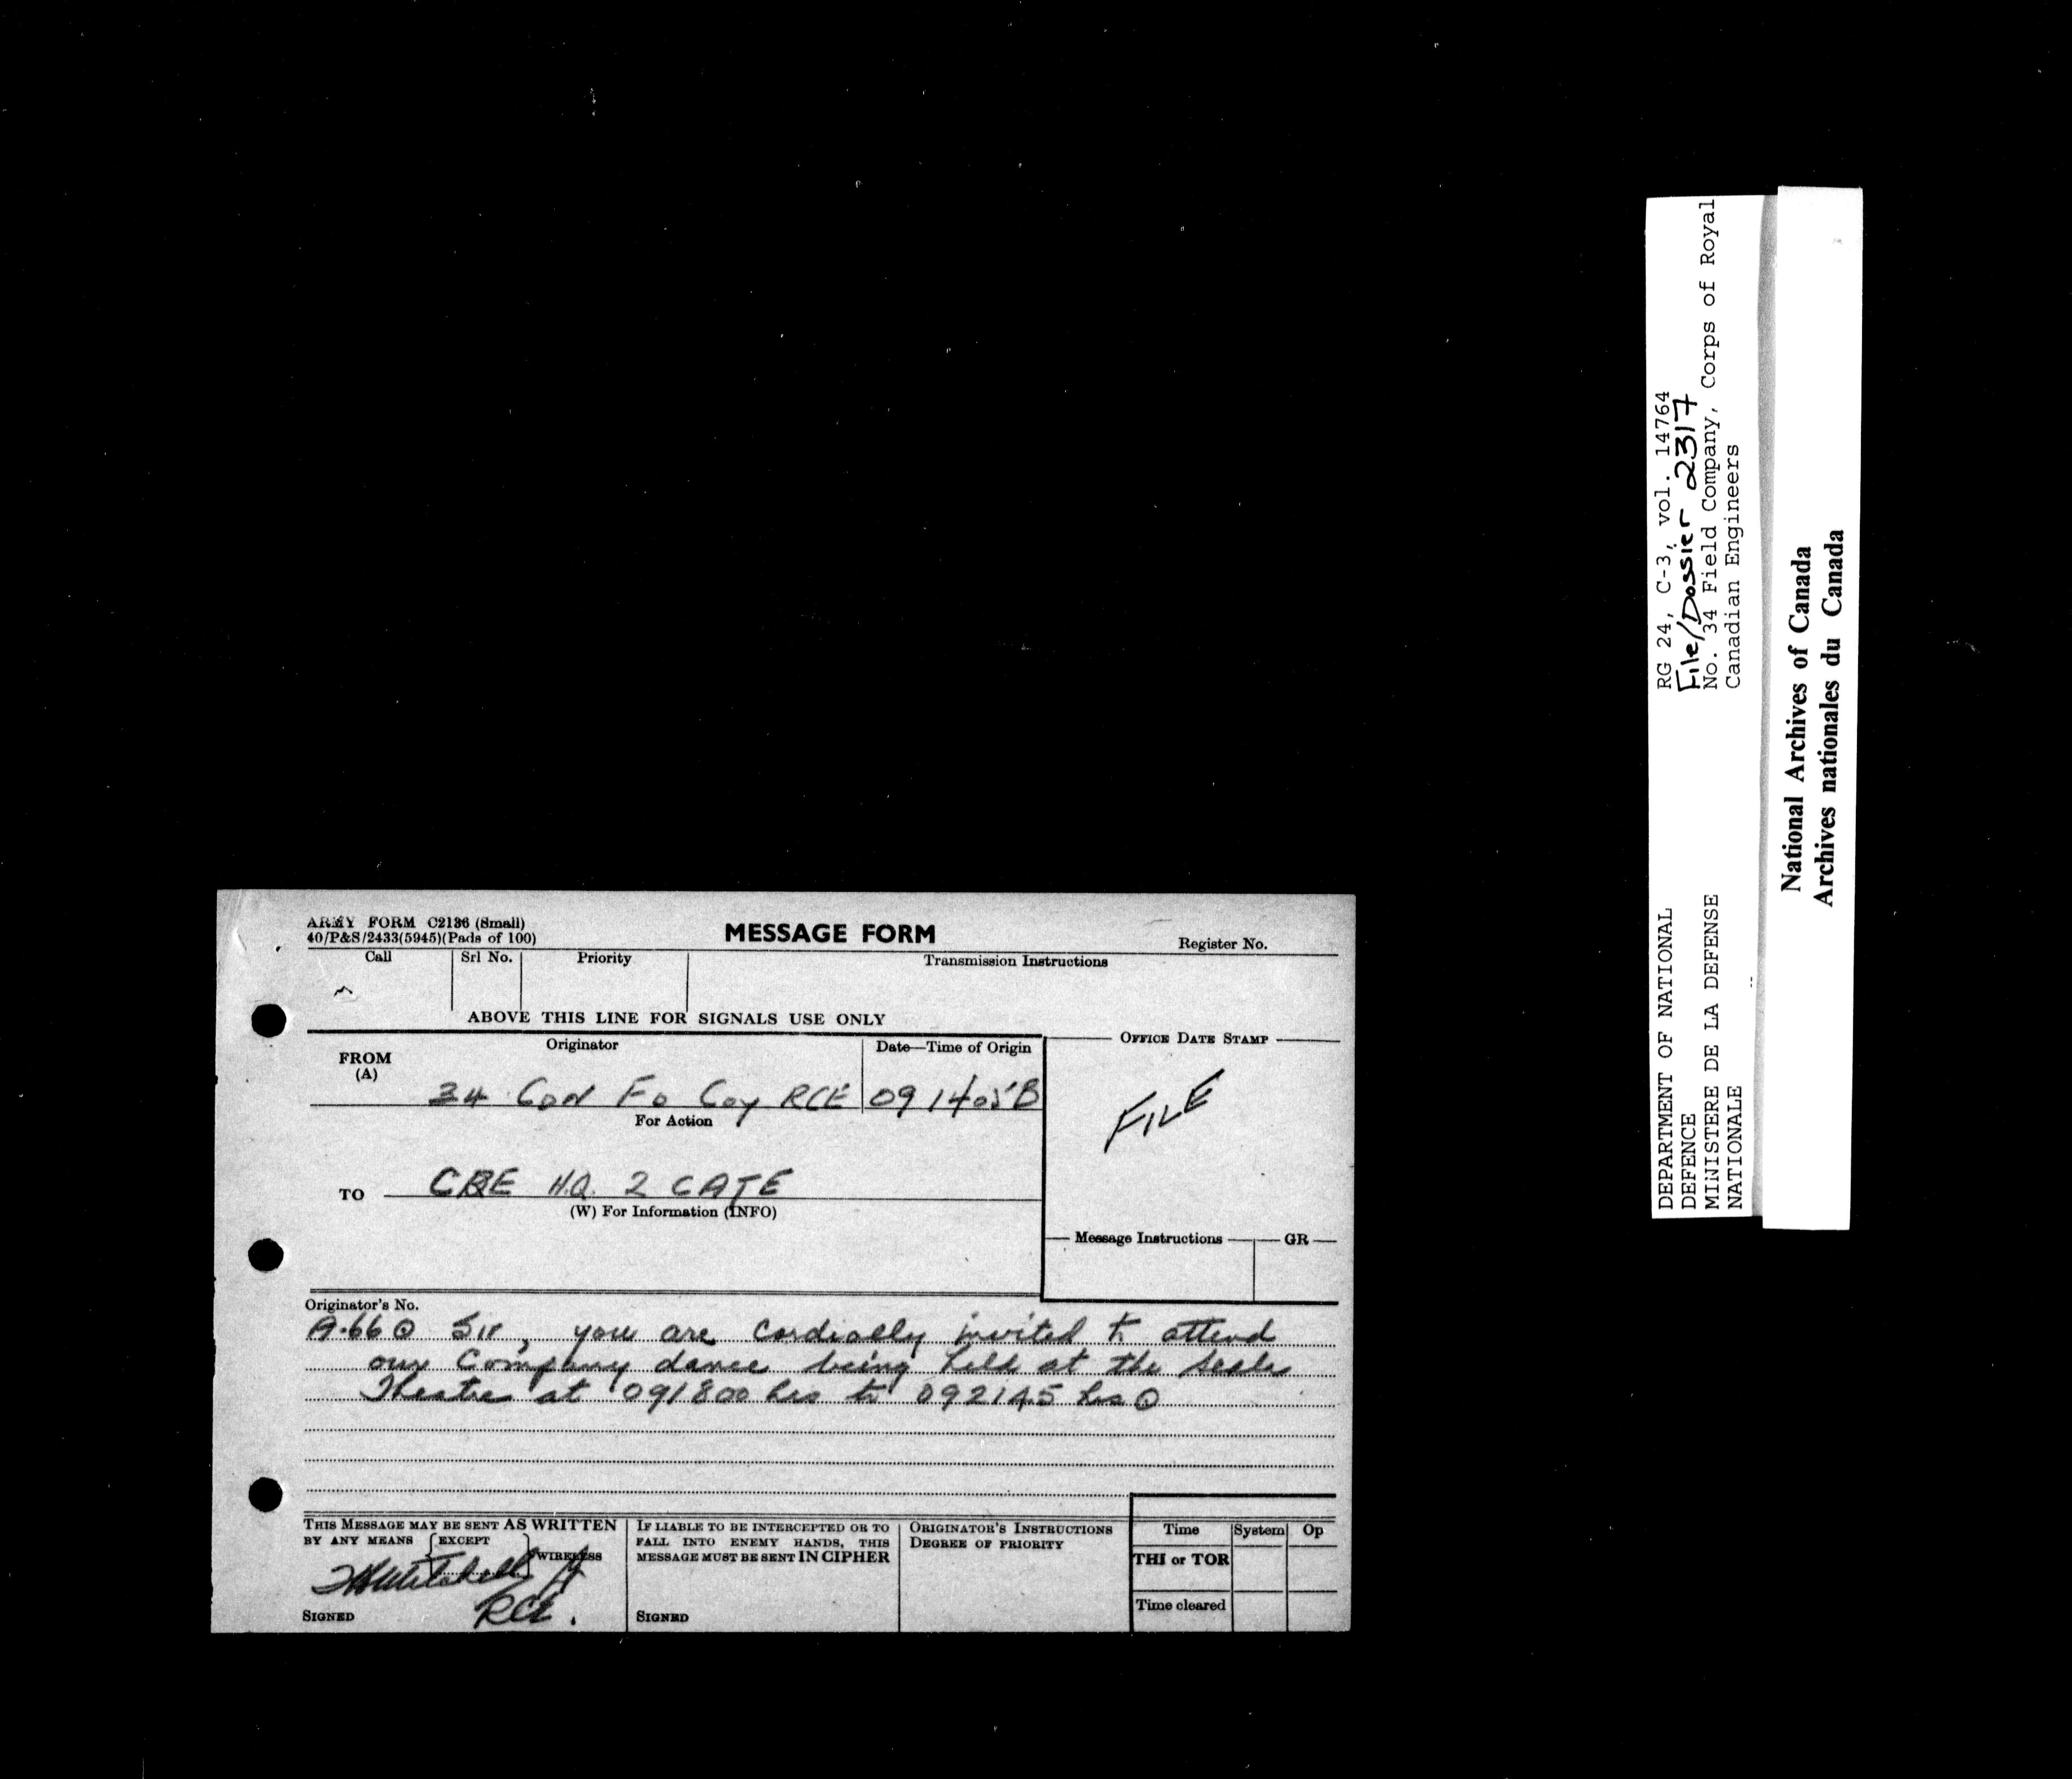 ARMY FORM C2136 (Small)
40/P&S/2433(5945)(Pads of 100)
MESSAGE FORM
Register No.
Call Srl No. Priority Transmission Instructions
ABOVE THIS LINE FOR SIGNALS USE ONLY
FROM (A)
Originator
Date—Time of Origin
OFFICE DATE STAMP
34 CDN FD Coy RCE 091405B
FILE
For Action
TO CRE H.Q. 2 CATE
(W) For Information (INFO)
Message Instructions GR
Originator's No.
A.66 ⊙ Sir, you are cordially invited to attend
our Company dance being held at the
Theatre at 091800 hrs to 092145 hrs ⊙
THIS MESSAGE MAY BE SENT AS WRITTEN
BY ANY MEANS EXCEPT
WIRELESS
Mitchell
RCE.
SIGNED
IF LIABLE TO BE INTERCEPTED OR TO
FALL INTO ENEMY HANDS, THIS
MESSAGE MUST BE SENT IN CIPHER
SIGNED
ORIGINATOR'S INSTRUCTIONS
DEGREE OF PRIORITY
Time System Op
THI or TOR
Time cleared
RG 24, C-3, vol. 14764
File/Dossier 2317
No. 34 Field Company, Corps of Royal
Canadian Engineers
DEPARTMENT OF NATIONAL
DEFENCE
MINISTERE DE LA DEFENSE
NATIONALE
National Archives of Canada
Archives nationales du Canada